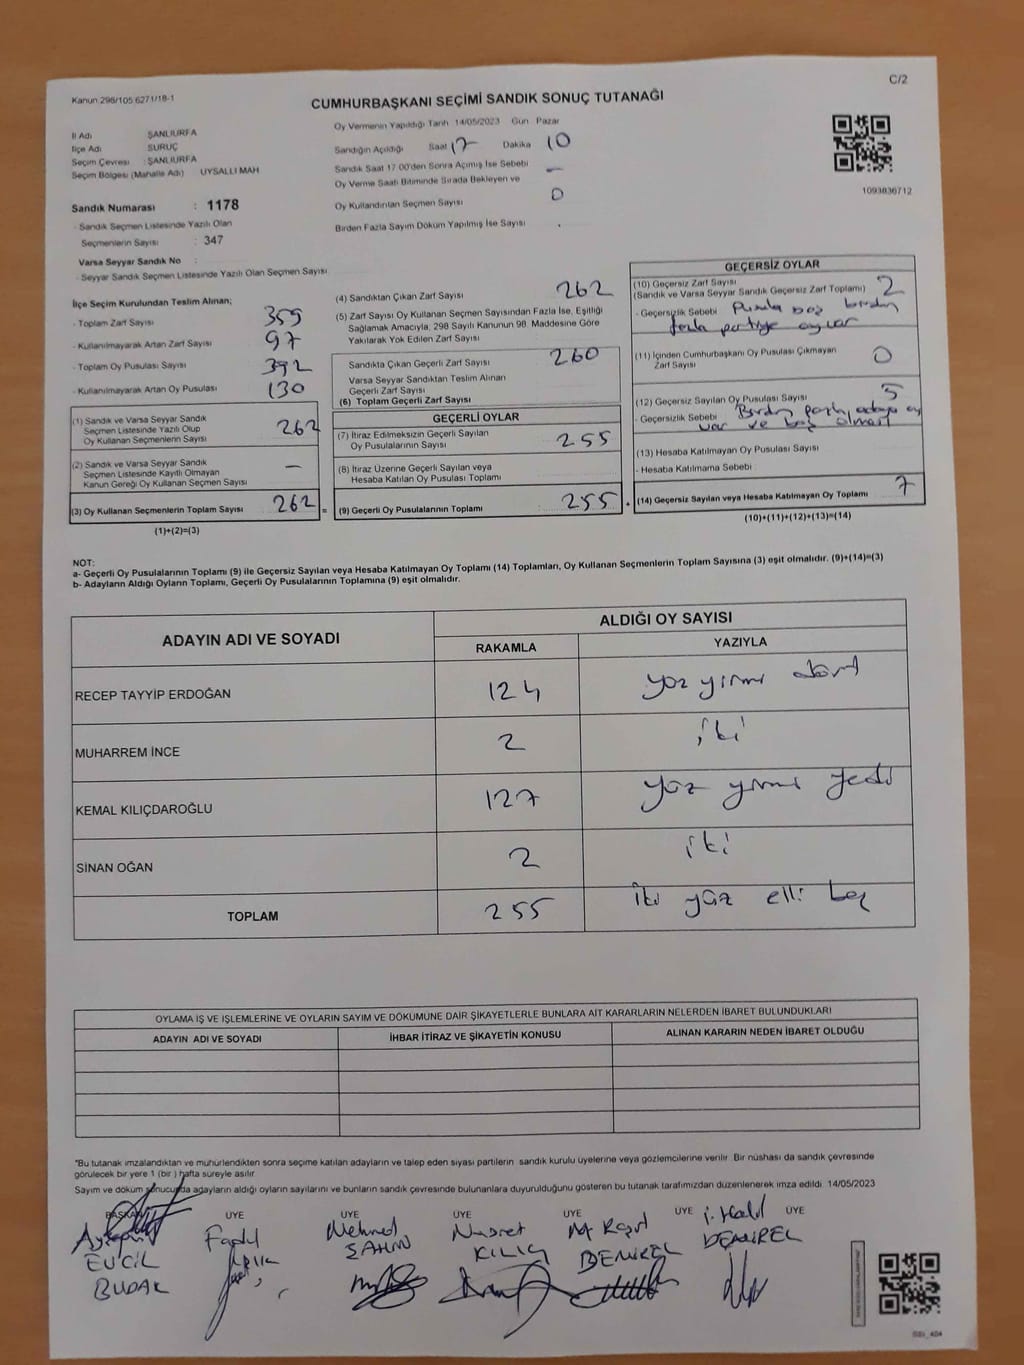 C/2
Kanun:298/105 6271/18-1
CUMHURBAŞKANI SEÇİMİ SANDIK SONUÇ TUTANAĞI
İl Adı ŞANLIURFA
İlçe Adı SURUÇ
Seçim Çevresi : ŞANLIURFA
Seçim Bölgesi (Mahalle Adı) UYSALLI MAH
Sandık Numarası : 1178
- Sandık Seçmen Listesinde Yazılı Olan
Seçmenlerin Sayısı : 347
Varsa Seyyar Sandık No :
- Seyyar Sandık Seçmen Listesinde Yazılı Olan Seçmen Sayısı
Oy Vermenin Yapıldığı Tarih 14/05/2023 Gün Pazar
Sandığın Açıldığı Saat 17 Dakika 10
Sandık Saat 17.00'den Sonra Açımış İse Sebebi —
Oy Verme Saati Bitiminde Sırada Bekleyen ve
Oy Kullandırılan Seçmen Sayısı 0
Birden Fazla Sayım Döküm Yapılmış İse Sayısı
1093836712
İlçe Seçim Kurulundan Teslim Alınan;
- Toplam Zarf Sayısı 359
- Kullanılmayarak Artan Zarf Sayısı 97
- Toplam Oy Pusulası Sayısı 392
- Kullanılmayarak Artan Oy Pusulası 130
(1) Sandık ve Varsa Seyyar Sandık
Seçmen Listesinde Yazılı Olup
Oy Kullanan Seçmenlerin Sayısı 262
(2) Sandık ve Varsa Seyyar Sandık
Seçmen Listesinde Kayıtlı Olmayan
Kanun Gereği Oy Kullanan Seçmen Sayısı —
(3) Oy Kullanan Seçmenlerin Toplam Sayısı 262 =
(1)+(2)=(3)
(4) Sandıktan Çıkan Zarf Sayısı 262
(5) Zarf Sayısı Oy Kullanan Seçmen Sayısından Fazla İse, Eşitliği
Sağlamak Amacıyla, 298 Sayılı Kanunun 98. Maddesine Göre
Yakılarak Yok Edilen Zarf Sayısı
Sandıkta Çıkan Geçerli Zarf Sayısı 260
Varsa Seyyar Sandıktan Teslim Alınan
Geçerli Zarf Sayısı
(6) Toplam Geçerli Zarf Sayısı
GEÇERLİ OYLAR
(7) İtiraz Edilmeksizin Geçerli Sayılan
Oy Pusulalarının Sayısı 255
(8) İtiraz Üzerine Geçerli Sayılan veya
Hesaba Katılan Oy Pusulası Toplamı
(9) Geçerli Oy Pusulalarının Toplamı 255 +
GEÇERSİZ OYLAR
(10) Geçersiz Zarf Sayısı
(Sandık ve Varsa Seyyar Sandık Geçersiz Zarf Toplamı) 2
- Geçersizlik Sebebi Pusula boş birden
fazla partiye oylar
(11) İçinden Cumhurbaşkanı Oy Pusulası Çıkmayan
Zarf Sayısı 0
(12) Geçersiz Sayılan Oy Pusulası Sayısı 5
- Geçersizlik Sebebi Birden fazla adaya oy
var ve boş olması
(13) Hesaba Katılmayan Oy Pusulası Sayısı
- Hesaba Katılmama Sebebi
(14) Geçersiz Sayılan veya Hesaba Katılmayan Oy Toplamı 7
(10)+(11)+(12)+(13)=(14)
NOT:
a- Geçerli Oy Pusulalarının Toplamı (9) ile Geçersiz Sayılan veya Hesaba Katılmayan Oy Toplamı (14) Toplamları, Oy Kullanan Seçmenlerin Toplam Sayısına (3) eşit olmalıdır. (9)+(14)=(3)
b- Adayların Aldığı Oyların Toplamı, Geçerli Oy Pusulalarının Toplamına (9) eşit olmalıdır.
ADAYIN ADI VE SOYADI ALDIĞI OY SAYISI
RAKAMLA YAZIYLA
RECEP TAYYİP ERDOĞAN 124 yüz yirmi dört
MUHARREM İNCE 2 iki
KEMAL KILIÇDAROĞLU 127 yüz yirmi yedi
SİNAN OĞAN 2 iki
TOPLAM 255 iki yüz elli beş
OYLAMA İŞ VE İŞLEMLERİNE VE OYLARIN SAYIM VE DÖKÜMÜNE DAİR ŞİKAYETLERLE BUNLARA AİT KARARLARIN NELERDEN İBARET BULUNDUKLARI
ADAYIN ADI VE SOYADI İHBAR İTİRAZ VE ŞİKAYETİN KONUSU ALINAN KARARIN NEDEN İBARET OLDUĞU
"Bu tutanak imzalandıktan ve mühürlendikten sonra seçime katılan adayların ve talep eden siyasi partilerin sandık kurulu üyelerine veya gözlemcilerine verilir. Bir nüshası da sandık çevresinde
görülecek bir yere 1 (bir ) hafta süreyle asılır.
Sayım ve döküm sonucunda adayların aldığı oyların sayılarını ve bunların sandık çevresinde bulunanlara duyurulduğunu gösteren bu tutanak tarafımızdan düzenlenerek imza edildi. 14/05/2023
BAŞKAN ÜYE ÜYE ÜYE ÜYE ÜYE ÜYE
EVCİL BUDAK
Fadıl
Mehmed ŞAHİN
Nusret KILIÇ
M Raşit DEMİREL
İ. Halil DEMİREL